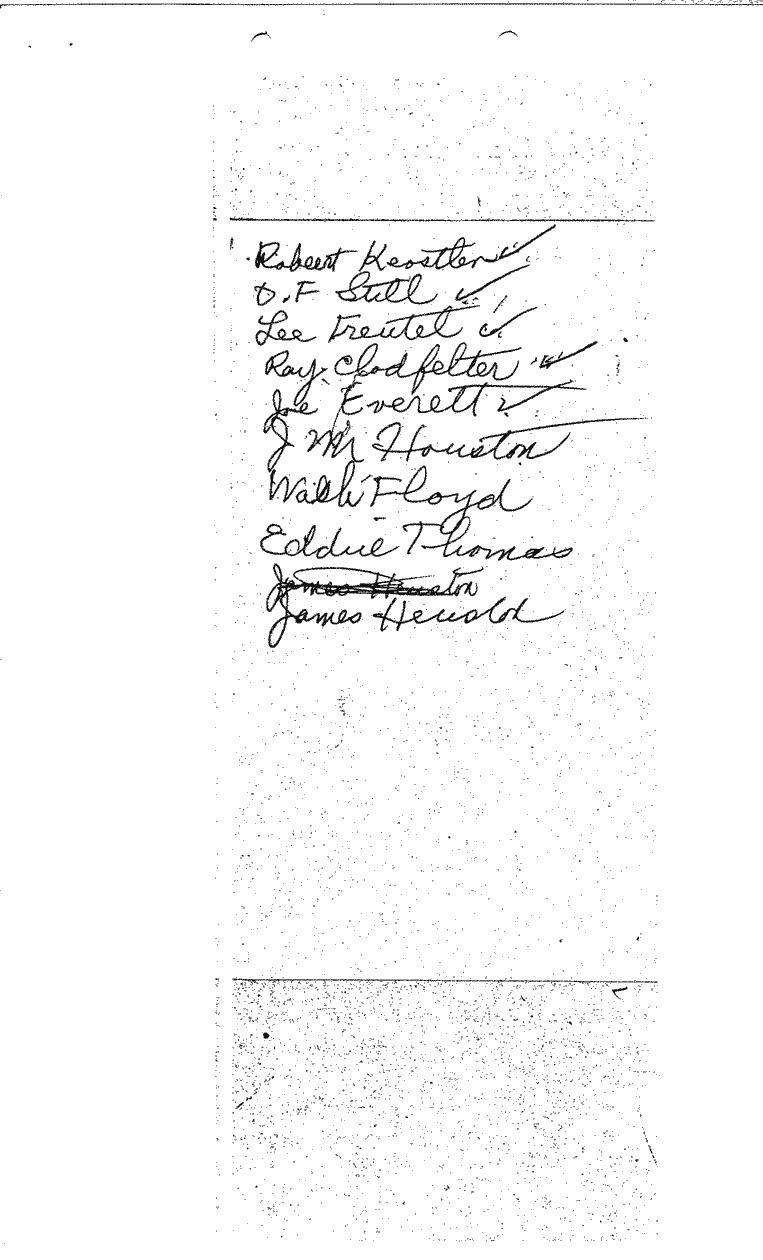 Robert Keostler ✓
D.F Still ✓
Lee Treutel ✓
Ray Clodfelter ✓
Joe Everett ✓
J Mc Houston
Walli Floyd
Eddie Thomas
James Houston
James Herold